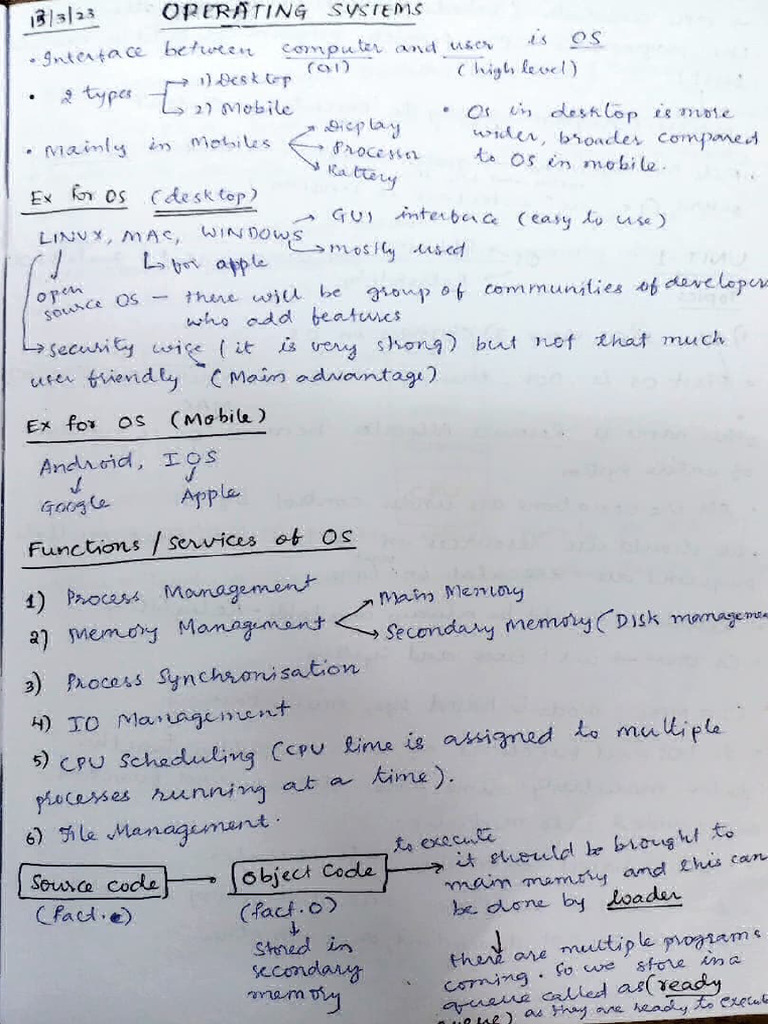 13/3/23 OPERATING SYSTEMS
• Interface between computer and user is OS
(01) (high level)
• 2 types → 1) Desktop
→ 2) Mobile
• Mainly in Mobiles → Display
→ Processor
→ Battery
• OS in desktop is more
wider, broader compared
to OS in mobile.
Ex for OS (desktop)
LINUX, MAC, WINDOWS → GUI interface (easy to use)
→ mostly used
↳ for apple
open
source OS — there will be group of communities of developers
who add features
→ security wise (it is very strong) but not that much
user friendly (Main advantage)
Ex for OS (Mobile)
Android, IOS
↓ ↓
Google Apple
Functions / Services of OS
1) Process Management
2) Memory Management → Main Memory
→ Secondary Memory (Disk manageme
3) Process Synchronisation
4) IO Management
5) CPU Scheduling (CPU time is assigned to multiple
processes running at a time).
6) File Management.
Source code → Object Code → to execute
(fact.c) (fact.o)
↓
Stored in
secondary
memory
it should be brought to
main memory and this can
be done by loader
↓
there are multiple programs
coming. So we store in a
queue called as (ready
queue) as they are ready to execute